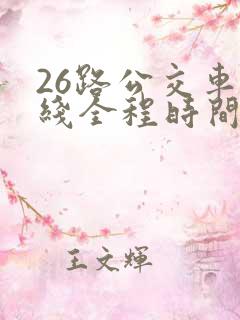 26路公交車
綫全程時間
王文輝